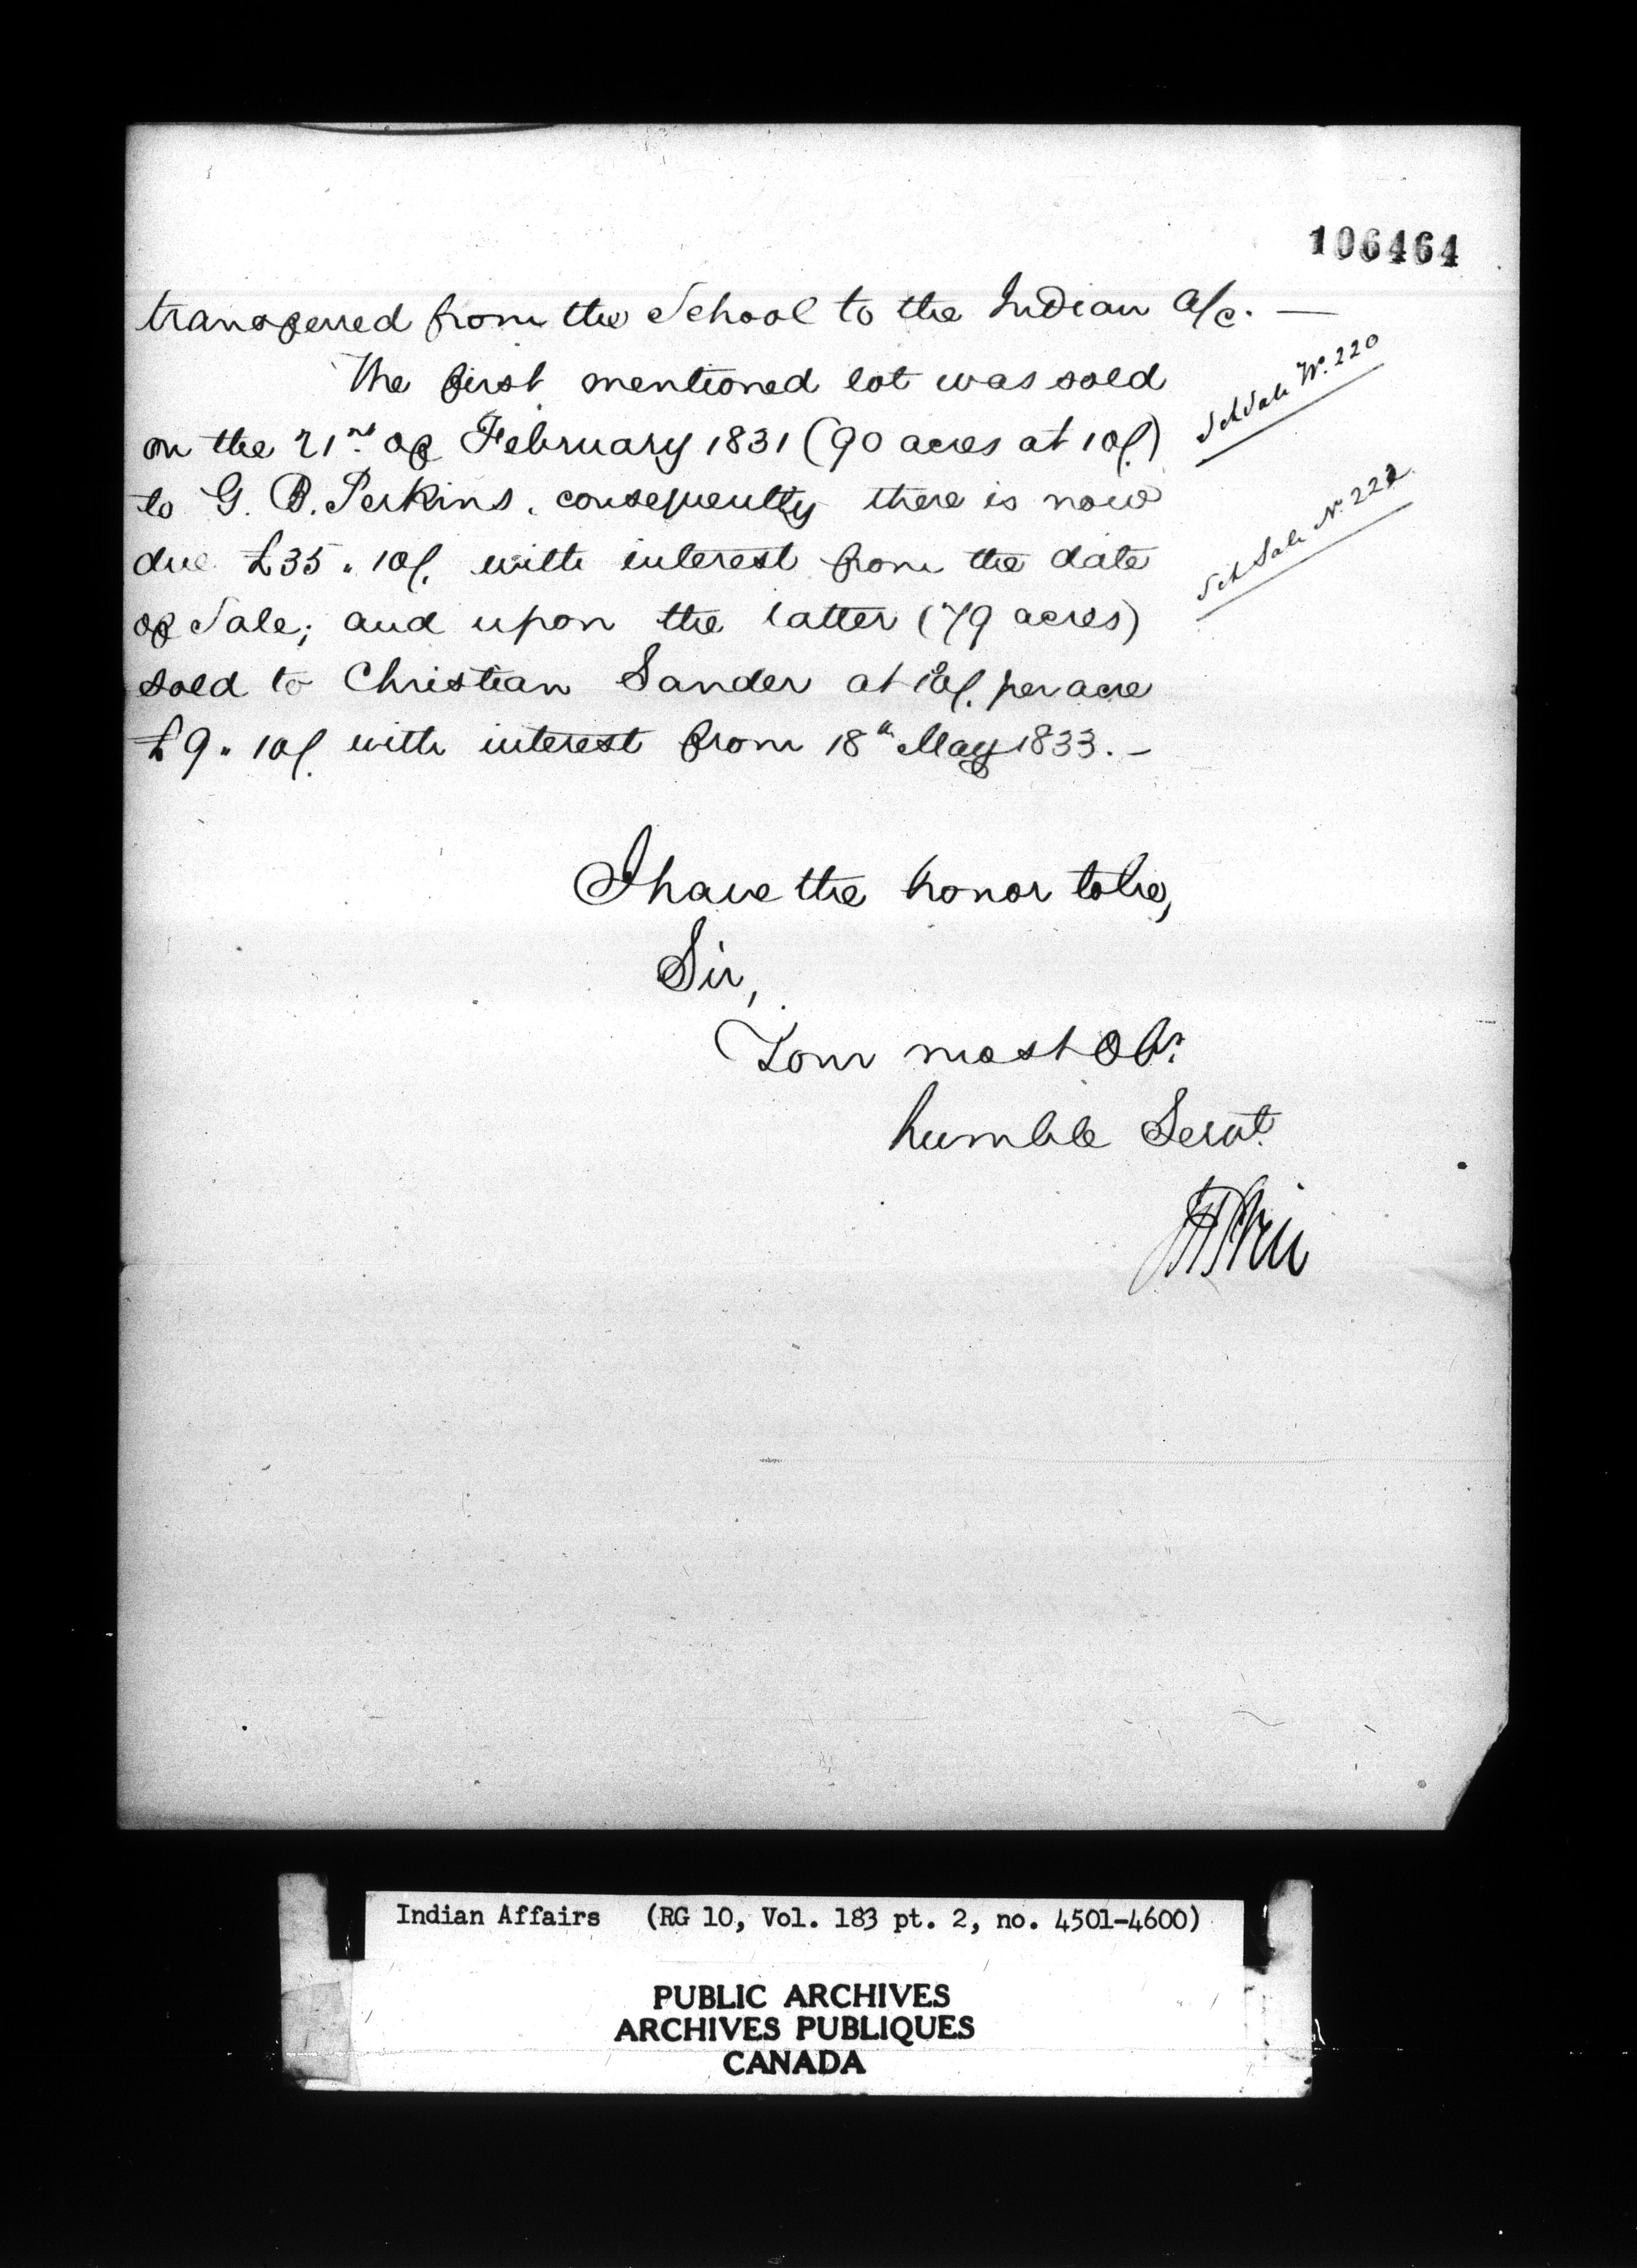 106464
transferred from the School to the Indian a/c. —
The first mentioned lot was sold
on the 21st of February 1831 (90 acres at 10/.)
to G. B. Perkins, consequently there is now
due £35 " 10/. with interest from the date
of Sale; and upon the latter (79 acres)
sold to Christian Sander at 10/. per acre
£9 " 10/. with interest from 18th May 1833. –
Sch Sale No. 220
Sch Sale No. 222
I have the honor to be,
Sir,
Your most Obt.
humble Servt.
Indian Affairs (RG 10, Vol. 183 pt. 2, no. 4501-4600)
PUBLIC ARCHIVES
ARCHIVES PUBLIQUES
CANADA